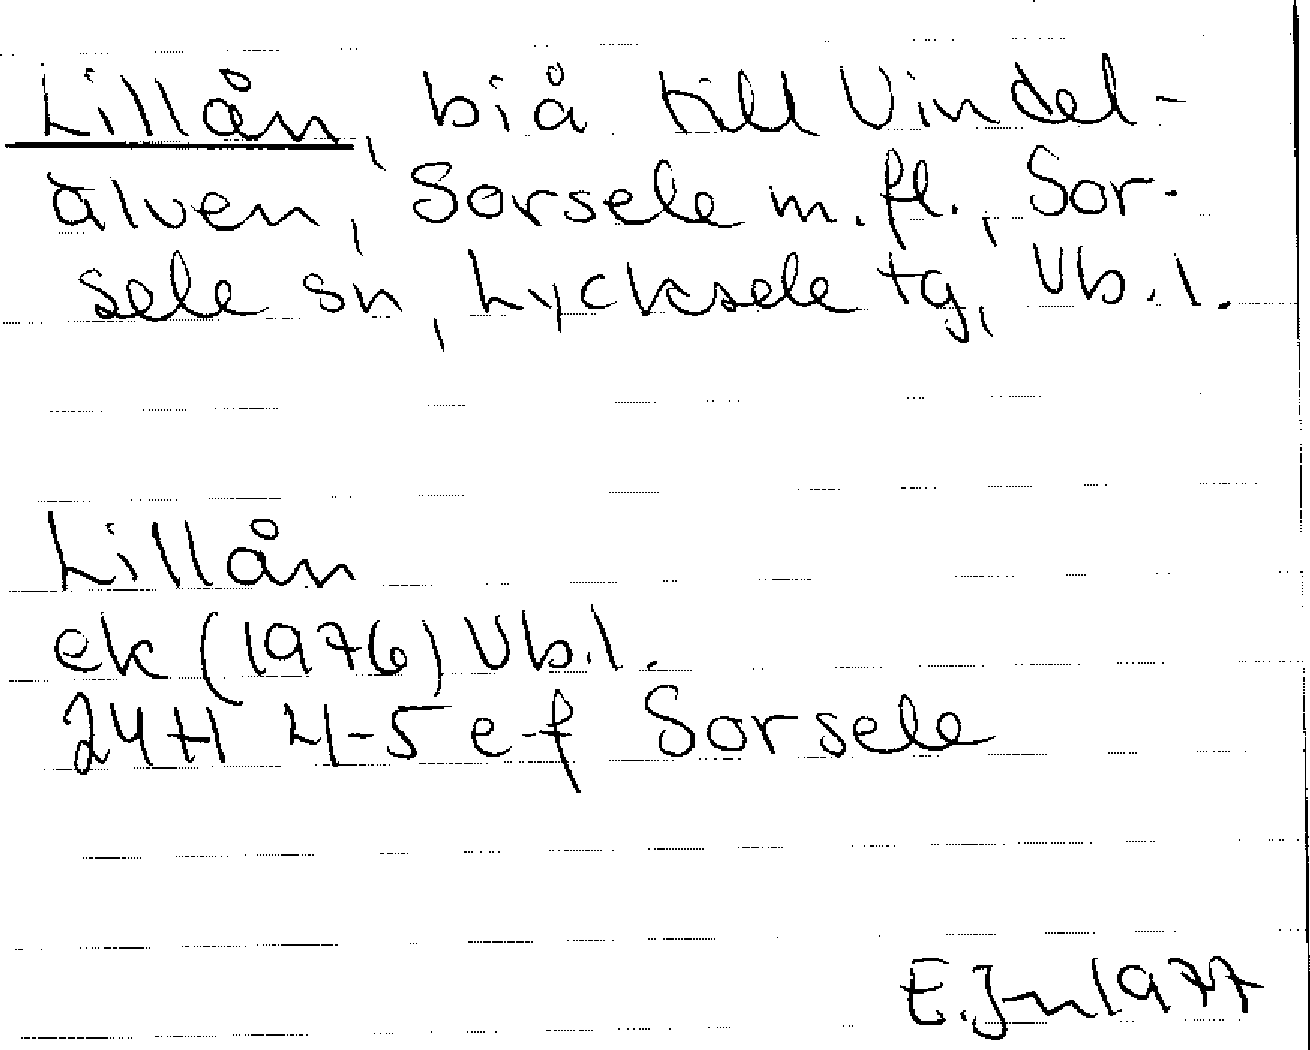 Lillån, biå till Vindel-
älven, Sorsele m.fl., Sor-
sele sn, Lycksele tg, Vb.l.
Lillån
ek (1976) Vb.l.
24H 4-5 e-f Sorsele
E.Jn 1977